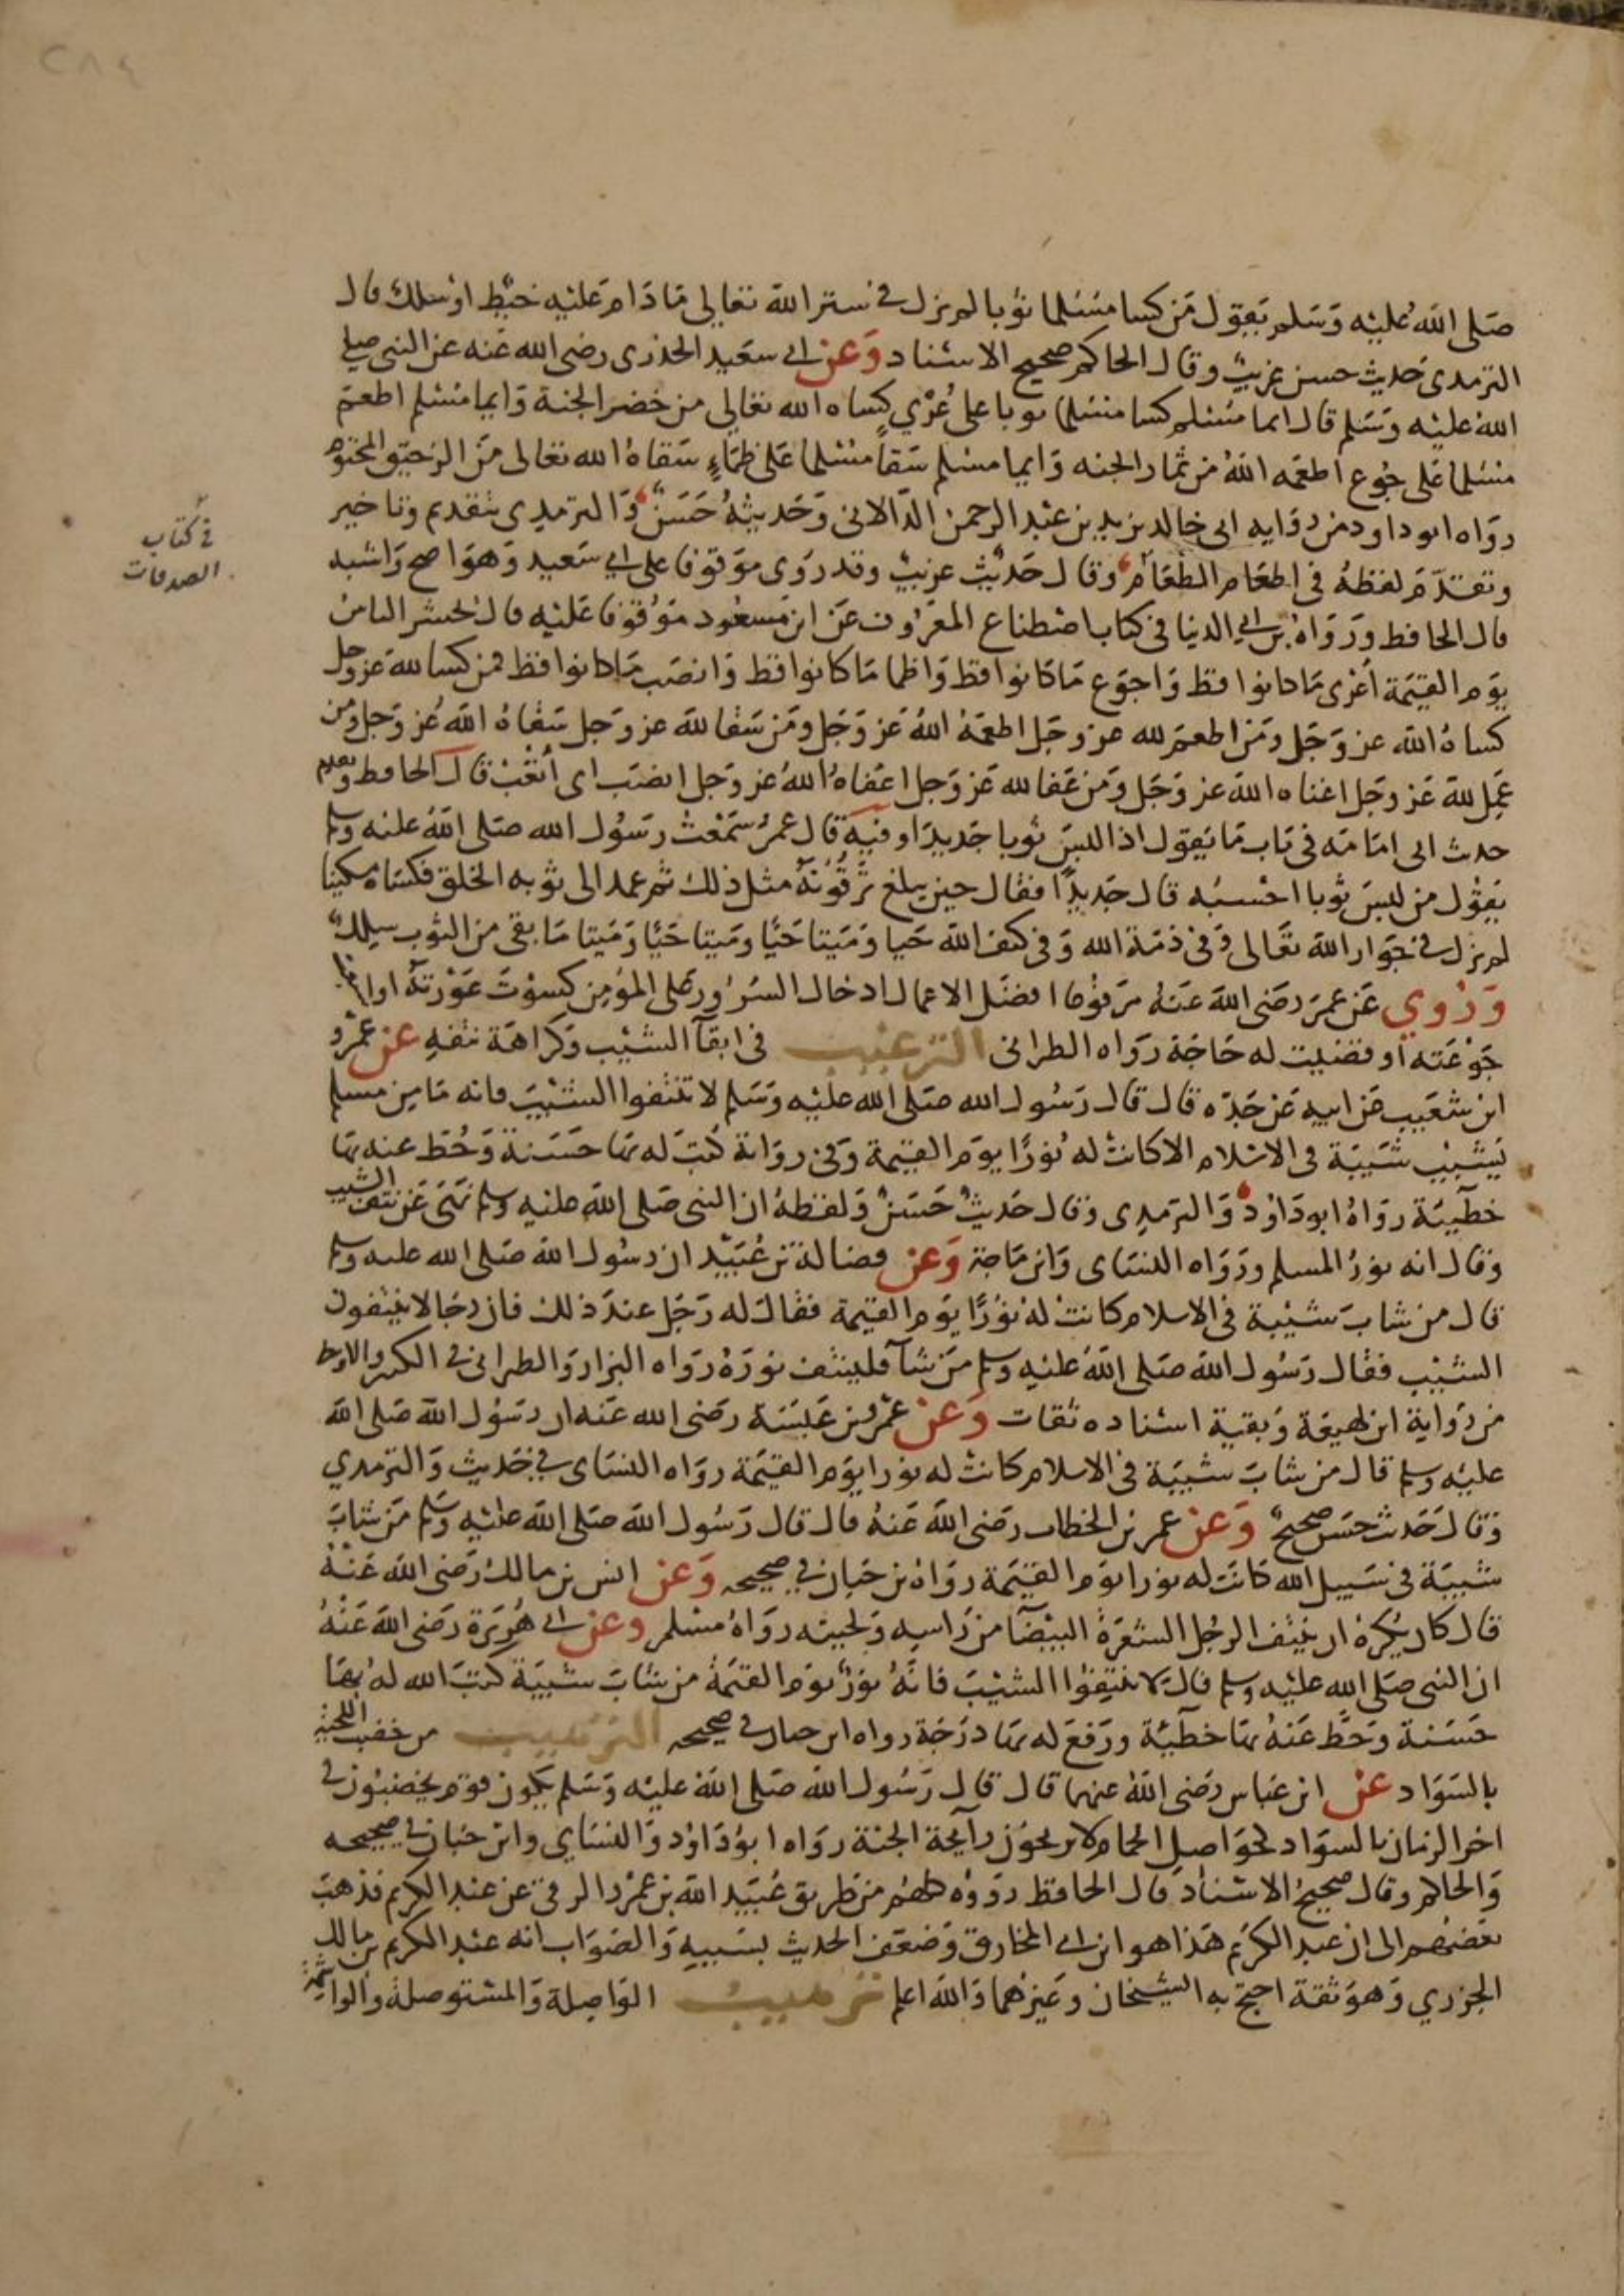 ٢٨٤
صلى الله عليه وسلم يقول من كسا مسلما ثوبا لم يزل في ستر الله تعالى ما دام عليه خيط او سلك قال
الترمدى حديث حسن غريب وقال الحاكم صحيح الاسناد وعن ابي سعيد الخدرى رضى الله عنه عن النبى صلى
الله عليه وسلم قال ايما مسلم كسا مسلما ثوبا على عُرْي كساه الله تعالى من خضر الجنة وايما مسلم اطعم
مسلما على جوع اطعمه الله من ثمار الجنه وايما مسلم سقا مسلما على ظماءٍ سقاه الله تعالى من الرحيق المختوم
رواه ابو داود من روايه ابى خالد يزيد بن عبد الرحمن الدالانى وحديثه حسن والترمدى بتقديم وتاخير
وتقدم لفظه فى اطعام الطعام وقال حديث غريب وقد روى موقوفا على ابي سعيد وهو اصح واشبه
فى كتاب
الصدقات
قال الحافظ ورواه بن ابي الدنيا فى كتاب اصطناع المعروف عن ابن مسعود موقوفا عليه قال يحشر الناس
يوم القيمة اعرى ما كانوا قط واجوع ما كانوا قط واظما ما كانوا قط وانصب ما كانوا قط فمن كسا لله عز وجل
كساه الله عز وجل ومن اطعم لله عز وجل اطعمه الله عز وجل ومن سقا لله عز وجل سقاه الله عز وجل ومن
عمل لله عز وجل اغناه الله عز وجل ومن عفا لله عز وجل اعفاه الله عز وجل انصب اى اتعب قال الحافظ وتقدم
حديث ابى امامه فى باب ما يقول اذا لبس ثوبا جديدا وفيه قال عمر سمعت رسول الله صلى الله عليه وسلم
يقول من لبس ثوبا احسبه قال جديدًا فقال حين يبلغ ترقوته مثل ذلك ثم عمد الى ثوبه الخلق فكساه مسكينا
لم يزل في جوار الله تعالى وفى ذمة الله وفى كنف الله حيا وميتا حيًا وميتا حيًا وميتا ما بقى من الثوب سلك
وروي عن عمر رضى الله عنه مرفوعا افضل الاعمال ادخال السرور على المؤمن كسوت عورته او اشبعت
جوعته او قضيت له حاجة رواه الطبرانى الترغيب فى ابقآ الشيب وكراهة نتفه عن عمرو
ابن شعيب عن ابيه عن جده قال قال رسول الله صلى الله عليه وسلم لا تنتفوا الشيب فانه ما من مسلم
يشيب شيبة فى الاسلام الا كانت له نورًا يوم القيمة وفى رواية كتب له بها حسنة وحط عنه بها
خطيئة رواه ابو داود والترمدى وقال حديث حسن ولفظه ان النبى صلى الله عليه وسلم نهى عن نتف الشيب
وقال انه نور المسلم ورواه النساى وابن ماجة وعن فضالة بن عُبَيد ان رسول الله صلى الله عليه وسلم
قال من شاب شيبة فى الاسلام كانت له نورًا يوم القيمة فقال له رجل عند ذلك فان رجالا ينتفون
الشيب فقال رسول الله صلى الله عليه وسلم من شآ فلينتف نوره رواه البزار والطبرانى فى الكبير والاوسط
من رواية ابن لهيعة وبقية اسناده ثقات وعن عمرو بن عبسة رضى الله عنه ان رسول الله صلى الله
عليه وسلم قال من شاب شيبة فى الاسلام كانت له نورا يوم القيمة رواه النساى في حديث والترمدي
وقال حديث حسن صحيح وعن عمر بن الخطاب رضى الله عنه قال قال رسول الله صلى الله عليه وسلم من شاب
شيبة فى سبيل الله كانت له نورا يوم القيمة رواه بن حبان في صحيحه وعن انس بن مالك رضى الله عنه
قال كان يكره ان ينتف الرجل الشعرة البيضآ من راسه ولحيته رواه مسلم وعن ابي هُريرة رضى الله عنه
ان النبى صلى الله عليه وسلم قال لا تنتفوا الشيب فانه نور يوم القيمة من شاب شيبة كتب الله له بها
حسنة وحط عنه بها خطيئة ورفع له بها درجة رواه ابن حبان في صحيحه الترهيب من خضب اللحية
بالسواد عن ابن عباس رضى الله عنهما قال قال رسول الله صلى الله عليه وسلم يكون قوم يخضبون في
اخر الزمان بالسواد كحواصل الحمام لا يريحون رايحة الجنة رواه ابو داود والنساي وابن حبان في صحيحه
والحاكم وقال صحيح الاسناد قال الحافظ رووه كلهم من طريق عُبَيد الله بن عمرو الرقى عن عبد الكريم فذهب
بعضهم الى ان عبد الكريم هذا هو ابن ابي المخارق وضعف الحديث بسببه والصواب انه عبد الكريم بن مالك
الجزري وهو ثقة احتج به الشيخان وغيرهما والله اعلم ترهيب الواصلة والمستوصلة والواشمة